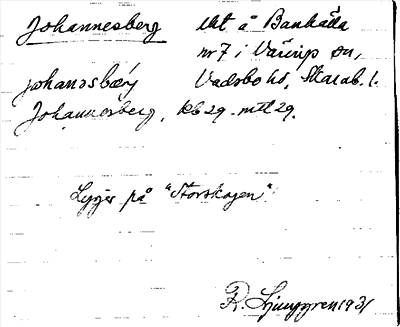 Johannesberg
lht å Bankälla
nr 7 i Väring sn,
Vadsbo hd, Skarab. l.
johanäsbærj
Johannesberg, kb 29. mtl 29.
Ligger på "Storskogen".
R. Ljunggren 1931